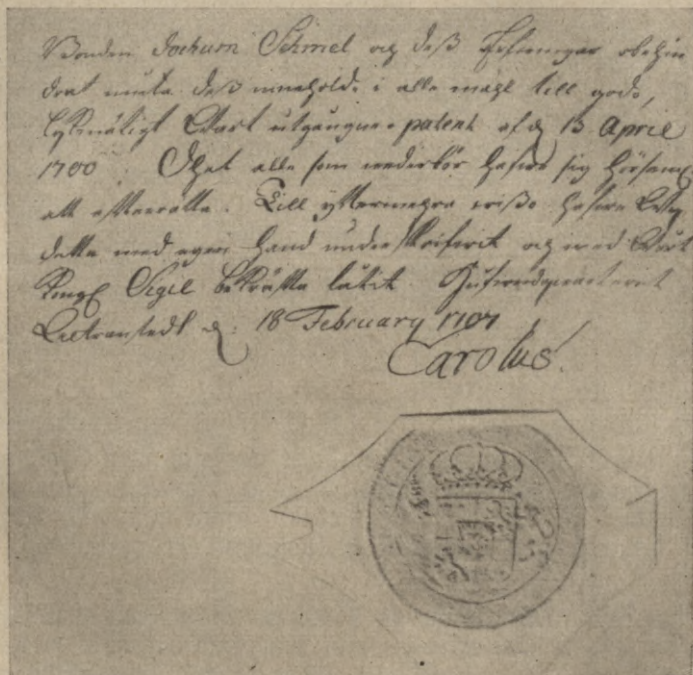 Bonden Jochum Schmel och deß Efterkommar obehin
drat niuta deß innehold i alle måhl till godo,
lykmätigt Wårt utgångne patent af d 13 April
1700. Thet alle som wederbör hafwe sig hörsaml
att effterrätta. Till yttermera wißo hafwe Wy
detta med egen hand underskrifwit och med Wårt
Kongl Sigil bekräfta låtit.
Altranstedt d. 18 February 1707
Carolus.